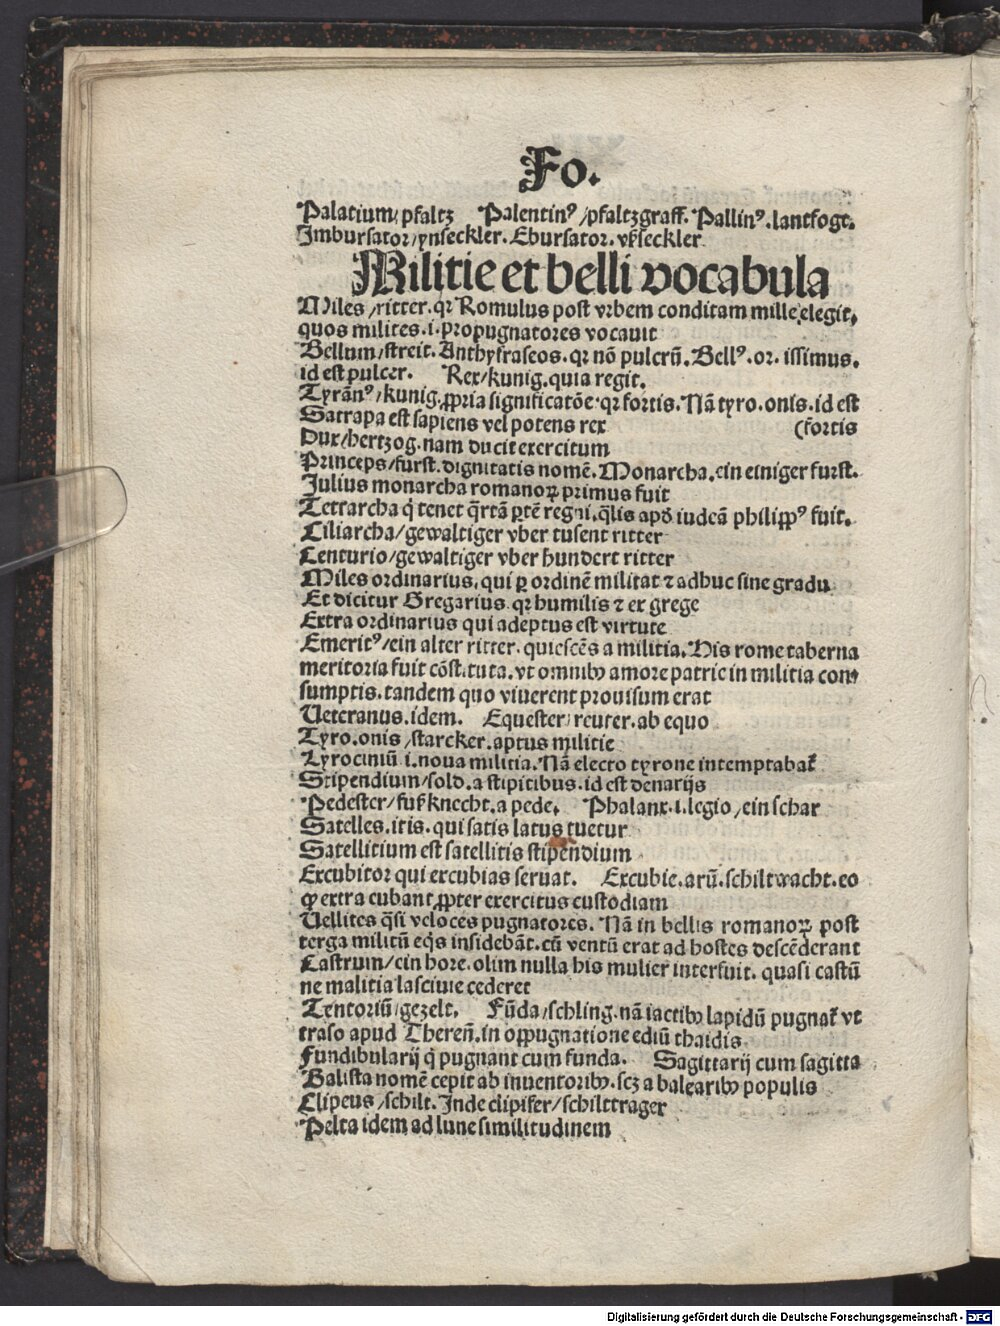 Fo.
Palatium/pfaltz Palentinꝰ/pfaltzgraff. Pallinꝰ.lantfogt.
Imbursator/ynseckler. Ebursator. vſzseckler
Militie et belli vocabula
Miles/ritter. qꝛ Romulus post vrbem conditam mille elegit,
quos milites .i. propugnatores vocauit
Bellum/streit. Anthyfraseos. qꝛ nō pulcrū. Bellꝰ. or. issimus.
id est pulcer. Rex/kunig. quia regit.
Tyrānꝰ/kunig. ꝓpria significatōe. qꝛ fortis. Nā tyro. onis. id est
Satrapa est sapiens vel potens rex (fortis
Dux/hertzog. nam ducit exercitum
Princeps/furst. dignitatis nomē. Monarcha. ein einiger furst.
Julius monarcha romanoꝝ primus fuit
Tetrarcha q̇ tenet q̄rtā ꝑtē regni. q̄lis apd̓ iudeā philippꝰ fuit.
Ciliarcha/gewaltiger vber tusent ritter
Centurio/gewaltiger vber hundert ritter
Miles ordinarius, qui ꝑ ordinē militat ⁊ adhuc sine gradu
Et dicitur Gregarius qꝛ humilis ⁊ ex grege
Extra ordinarius qui adeptus est virtute
Emeritꝰ/ein alter ritter. quiescēs a militia. His rome taberna
meritoria fuit cōstituta. vt omnibꝫ amore patrie in militia con⸗
sumptis. tandem quo viuerent prouisum erat
Ueteranus. idem. Equester/reuter. ab equo
Tyro. onis/starcker. aptus militie
Tyrociniū .i. noua militia. Nā electo tyrone intemptabat̄
Stipendium/sold. a stipitibus. id est denarijs
Pedester/fuſzknecht. a pede. Phalanx .i. legio/ein schar
Satelles. itis. qui satis latus tuetur
Satellitium est satellitis stipendium
Excubitor qui excubias seruat. Excubie. arū. schiltwacht. eo
ꝙ extra cubant ꝓpter exercitus custodiam
Uellites q̄si veloces pugnatores. Nā in bellis romanoꝝ post
terga militū eq̇s insidebāt. cū ventū erat ad hostes descēderant
Castrum/ein hore. olim nulla his mulier interfuit. quasi castū
ne malitia lasciuie cederet
Tentoriū/gezelt. Fūda/schling. nā iactibꝫ lapidū pugnat̄ vt
traso apud Thereñ. in oppugnatione ediū thaidis
Fundibularij q̇ pugnant cum funda. Sagittarij cum sagitta
Balista nomē cepit ab inuentoribꝫ. scꝫ a balearibꝫ populis
Clipeus/schilt. Inde clipifer/schilttrager
Pelta idem ad lune similitudinem
Digitalisierung gefördert durch die Deutsche Forschungsgemeinschaft - DFG